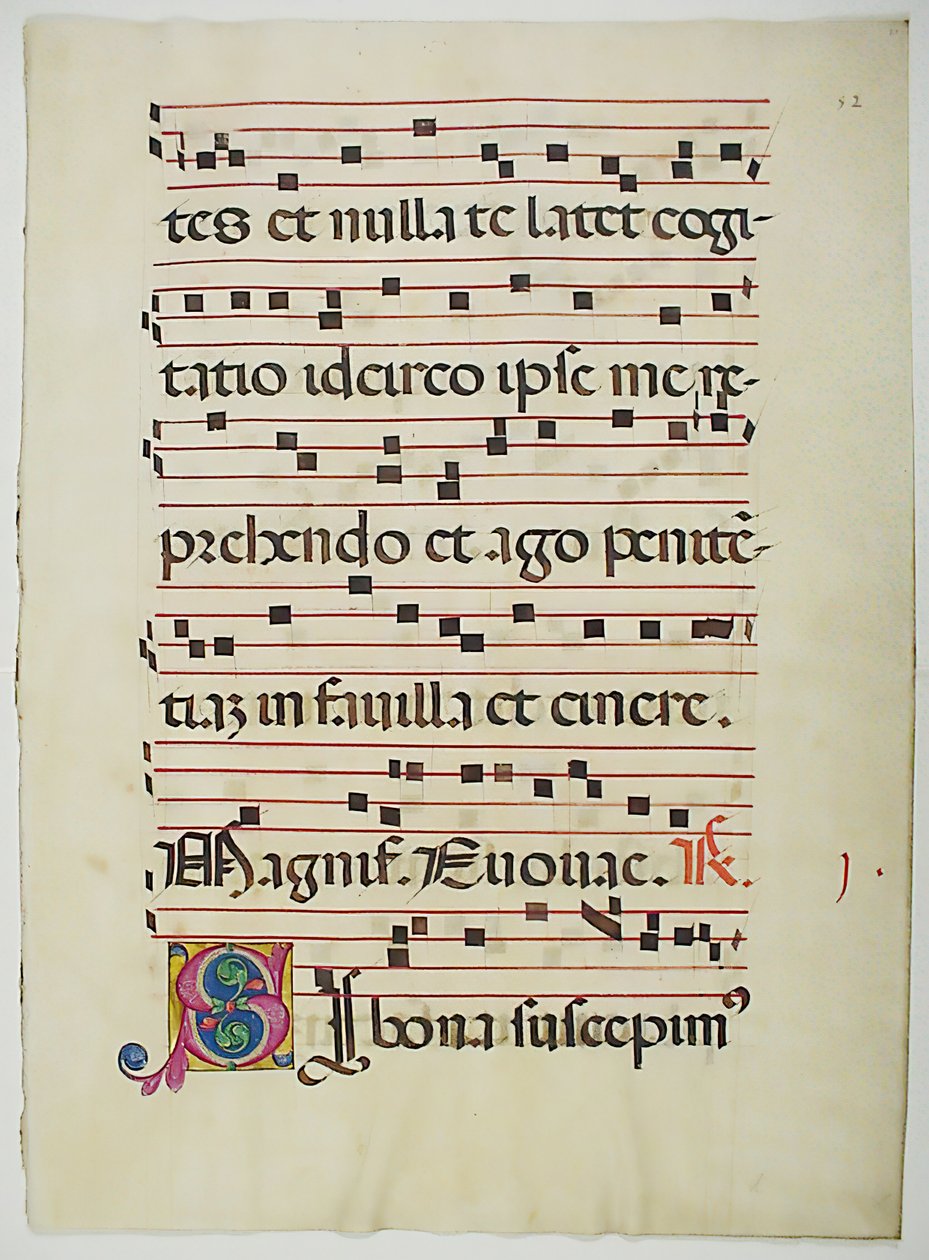 52
tes et nulla te latet cogi-
tatio idcirco ipse me re-
prehendo et ago penitē-
tiaz in fauilla et cinere.
Magnif. Euouae. ℟.
j.
SI bona suscepim⁹